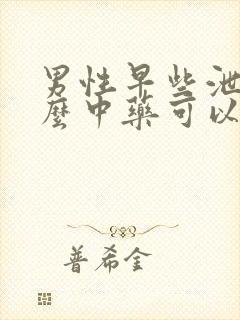 男性早些泄
麼中藥可以
普希金